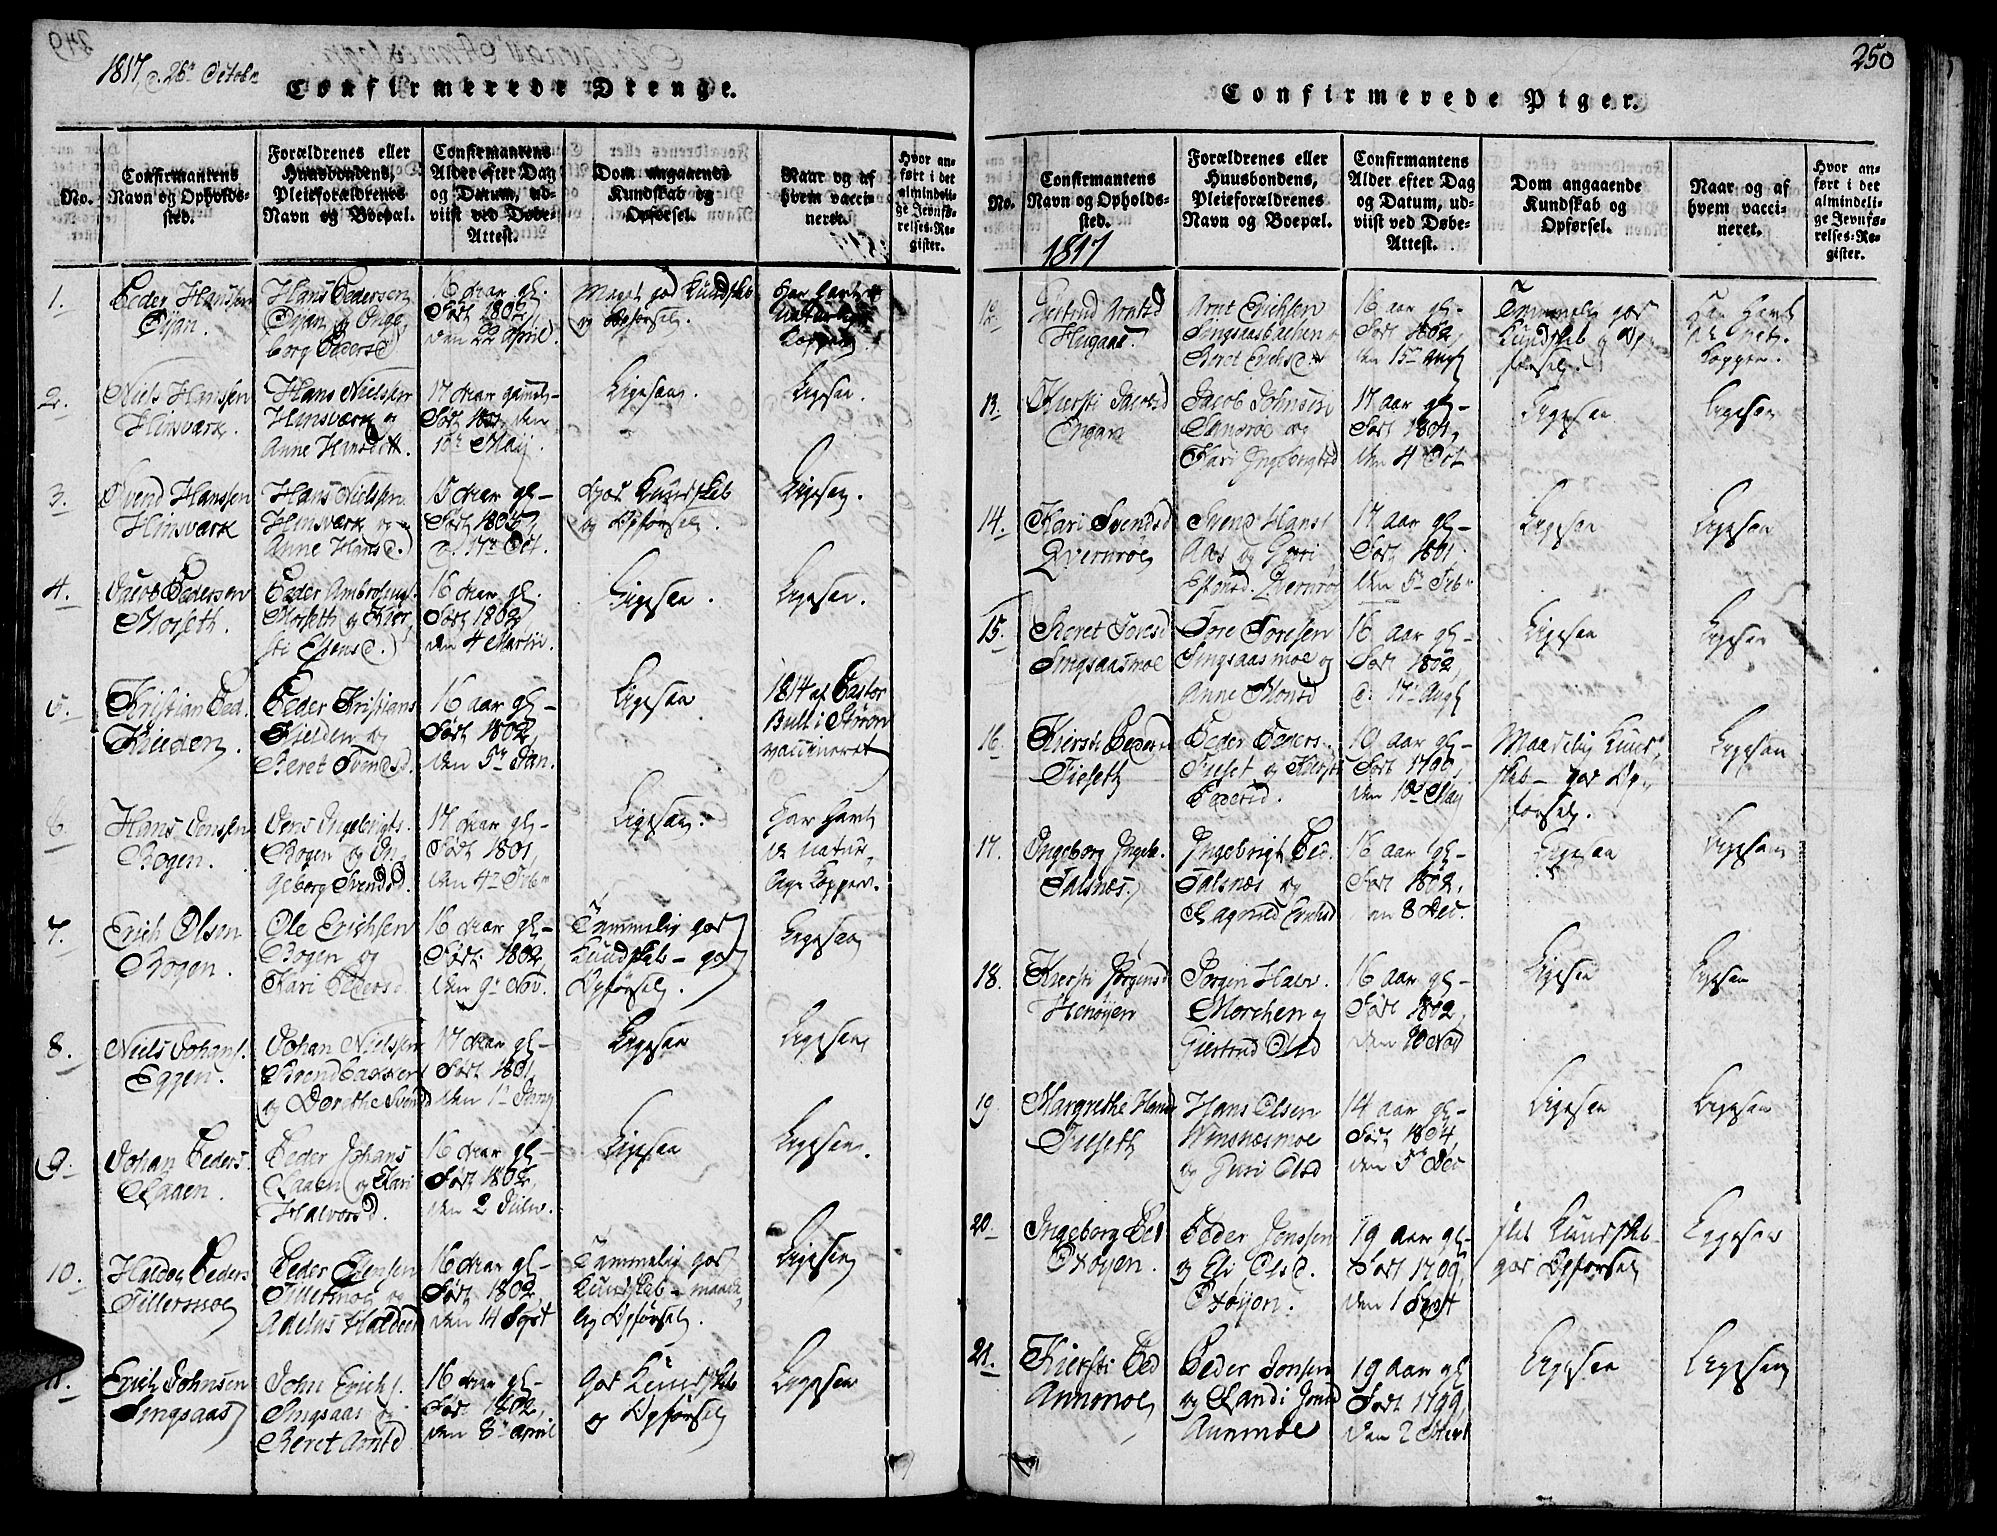 1817, d. 26de Octobr
Confirmerede Drenge.
No.
Confirmantens
Navn og Opholds-
sted.
Forældrenes eller
Huusbondens,
Pleieforældrenes
Navn og Boepæl.
Confirmantens
Alder efter Dag
og Datum, ud-
viist ved Døbe-
Attest.
Dom angaaende
Kundskab og
Opførsel.
Naar og af
hvem vacci-
neret.
Hvor an-
ført i det
almindeli-
ge Jevnfø-
relses-Re-
gister.
1.
Peder Hanssen
Dyan.
Hans Pedersen
Dyan og Inge
borg Pedersd
16 Aar gl.
Født 1802,
den 22 April.
Meget god Kundskab
og Opførsel.
har havt
naturlige
Kopper
2.
Niels Hanssen
Hinsværk.
Hans Nielssen
Hinsværk og
Anne Hansd
17 Aar gamel
Født 1801, den
10de Maij.
Ligesaa.
Ligesaa.
3.
Svend Hanssen
Hinsværk
Hans Nielsen
Hinsværk og
Anne Hansd.
15 Aar gl
d. 17de Oct.
God Kundskab
og Opførsel.
Ligesaa.
4.
Pedersen
Moseth.
Peder
Moseth og Kier
sti Estensd.
16 Aar gl.
Født 1802
den 4 Martii.
Ligesaa.
Ligesaa.
5.
Kristian Ped.
Peder Kristians
Fjelden og
Beret Svendsd.
16 aar gl
Født 1802,
den 5te Jan.
Ligesaa
1814 af Pastor
Bull i Støren
vaccineret
6.
Hans Jensen
Bogen.
Jens Ingebrigts.
Bogen og In
geborg Svendsd.
17 Aar gl
Født 1801,
den 4de Feb
Ligesaa.
har havt
de natur
lige Kopper.
7.
Erich Olsen
Bogen.
Ole Erichsen
Bogen og
Kari Pedersd
16 Aar gl
Født 1802
den 9de Nov.
Tammelig god
Kundskab – god
Opførsel.
Ligesaa
8.
Niels Johans.
Eggen.
Johan Nielssen
og Dorethe Svendsd
17 Aar gl
Født 1801,
Ligesaa
Ligesaa
9.
Johan Peders.
Laaen.
Peder Johans
Laaen og Kari
Halvorsd.
16 Aar gl
Født 1802,
Ligesaa
Ligesaa.
10.
Haldo Peders
Tillermoe
Peder Estensen
Tillermoe og
16 Aar gl
Født 1802,
den 14 Sept
Tammelig god
Kundskab – maade
lig Opførsel.
Ligesaa
11.
Erich Johnsen
Singsaas
John Erichs.
Singsaas og
Beret Arntsd
16 Aar gl
Født 1802,
den 8de April
God Kundskab
og Opførsel
Ligesaa
250
Confirmerede Piger.
No.
Confirmantens
Navn og Opholds-
sted.
1817
Forældrenes eller
Huusbondens,
Pleieforældrenes
Navn og Boepæl.
Confirmantens
Alder efter Dag
og Datum, ud-
viist ved Døbe-
Attest.
Dom angaaende
Kundskab og
Opførsel.
Naar og af
hvem vacci-
neret.
Hvor an-
ført i det
almindeli-
ge Jevnfø-
relses-Re-
gister.
12.
Arntsd
Haugan.
Arnt Erichsen
Singsaasbakken
Beret Erichsd
16 aar gl
Født 1802,
den 15de Aug
Tammelig god
Kundskab og Op-
førsel.
Har havt
Kopper.
13.
Kiersti Jacobsd
Engan
Jacob Johnsen
Kari Ingebrigtsd
17 aar gl
Født 1801,
den 4 Oct
Ligesaa
Ligesaa
14.
Kari Svendsd
Qvernrøe
Svend Hans
Aas og Guri
Estensd. Qvernrøe
17 aar gl
Født 1801.
den 5te Feb
Ligesaa
Ligesaa
15.
Beret Toresd
Singsaasmoe
Tore Toresen
Singsaasmoe og
Anne
16 Aar gl
Født 1802,
d. 17de Aug
Ligesaa
Ligesaa
16.
Kiersti Pedersd
Fieseth
Peder Peders.
Fieset og Kirsti
Pedersd.
Aar gl
den 18de Maj
Maadelig Kund
skab – god Op
førsel.
Ligesaa
17.
Ingeborg Ingeb.
Talsnes
Ingebrigt Ped.
Talsnæs og
Ragnild Erichsd
16 Aar gl
Født 1802,
den 8 Dec.
Ligesaa
Ligesaa
18.
Kiersti Jørgensd
Henøyen
Jørgen Halv.
Morchen og
Giertrud Olsd
16 aar gl
Født 1802,
Ligesaa
Ligesaa
19
Margrethe Hansd
Fieseth
Hans Olsen
Winsnæsmoe
og Guri Olsd
14 aar gl
Født 1804,
den 5te Dec
Ligesaa
Ligesaa
20.
Ingeborg Ped
Øxøyen.
Peder Jonssen
og Eli Olsd.
Øxøyen.
19 Aar gl
Født 1799,
den 1 Sept
slet Kundskab
god Opførsel
Ligesaa
21.
Kiersti Ped
Aunmoe
Peder Jonsen
og Randi Jonsd
Aunmoe
19 aar gl
Født 1799
Ligesaa
Ligesaa